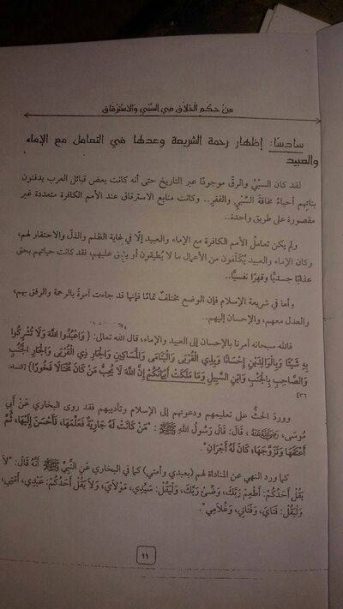 من حكم الخلاق في السبي والاسترقاق
سادسا: إظهار رحمة الشريعة وعدلها في التعامل مع الإماء
والعبيد
لقد كان السبي والرق موجودًا عبر التاريخ حتى أنه كانت بعض قبائل العرب يدفنون
بناتهم أحياءً مخافة السبي والفقر.. وكانت منابع الاسترقاق عند الأمم الكافرة متعددة غير
مقصورة على طريق واحدة..
ولم يكن تعامل الأمم الكافرة مع الإماء والعبيد إلا في غاية الظلم والذل والاحتقار لهم،
وكان الإماء والعبيد يُكلَّفون من الأعمال ما لا يُطيقون أو يشق عليهم، فقد كانت حياتهم بحق
عذابًا جسديًا وقهرًا نفسيًا.
وأما في شريعة الإسلام فإن الوضع مختلف تمامًا فإنها قد جاءت آمرة بالرحمة والرفق بهم،
والعدل معهم، والإحسان إليهم.
فالله سبحانه أمرنا بالإحسان إلى العبيد والإماء، قال الله تعالى: {وَاعْبُدُوا اللَّهَ وَلَا تُشْرِكُوا
بِهِ شَيْئًا وَبِالْوَالِدَيْنِ إِحْسَانًا وَبِذِي الْقُرْبَى وَالْيَتَامَى وَالْمَسَاكِينِ وَالْجَارِ ذِي الْقُرْبَى وَالْجَارِ الْجُنُبِ
وَالصَّاحِبِ بِالْجَنْبِ وَابْنِ السَّبِيلِ وَمَا مَلَكَتْ أَيْمَانُكُمْ إِنَّ اللَّهَ لَا يُحِبُّ مَنْ كَانَ مُخْتَالًا فَخُورًا} [النساء:
٣٦]
وورد الحث على تعليمهم ودعوتهم إلى الإسلام وتأديبهم فقد روى البخاري عَنْ أَبِي
مُوسَى، رَضِيَ اللَّهُ عَنْهُ، قَالَ: قَالَ رَسُولُ اللَّهِ ﷺ: "مَنْ كَانَتْ لَهُ جَارِيَةٌ فَعَلَّمَهَا، فَأَحْسَنَ إِلَيْهَا، ثُمَّ
أَعْتَقَهَا وَتَزَوَّجَهَا، كَانَ لَهُ أَجْرَانِ"
كما ورد النهي عن المناداة لهم (بعبدي وأمتي) كما في البخاري عَنِ النَّبِيِّ ﷺ أَنَّهُ قَالَ: "لاَ
يَقُلْ أَحَدُكُمْ: أَطْعِمْ رَبَّكَ، وَضِّئْ رَبَّكَ، وَلْيَقُلْ: سَيِّدِي، مَوْلاَيَ، وَلاَ يَقُلْ أَحَدُكُمْ: عَبْدِي، أَمَتِي،
وَلْيَقُلْ: فَتَايَ، وَفَتَاتِي، وَغُلاَمِي".
١١